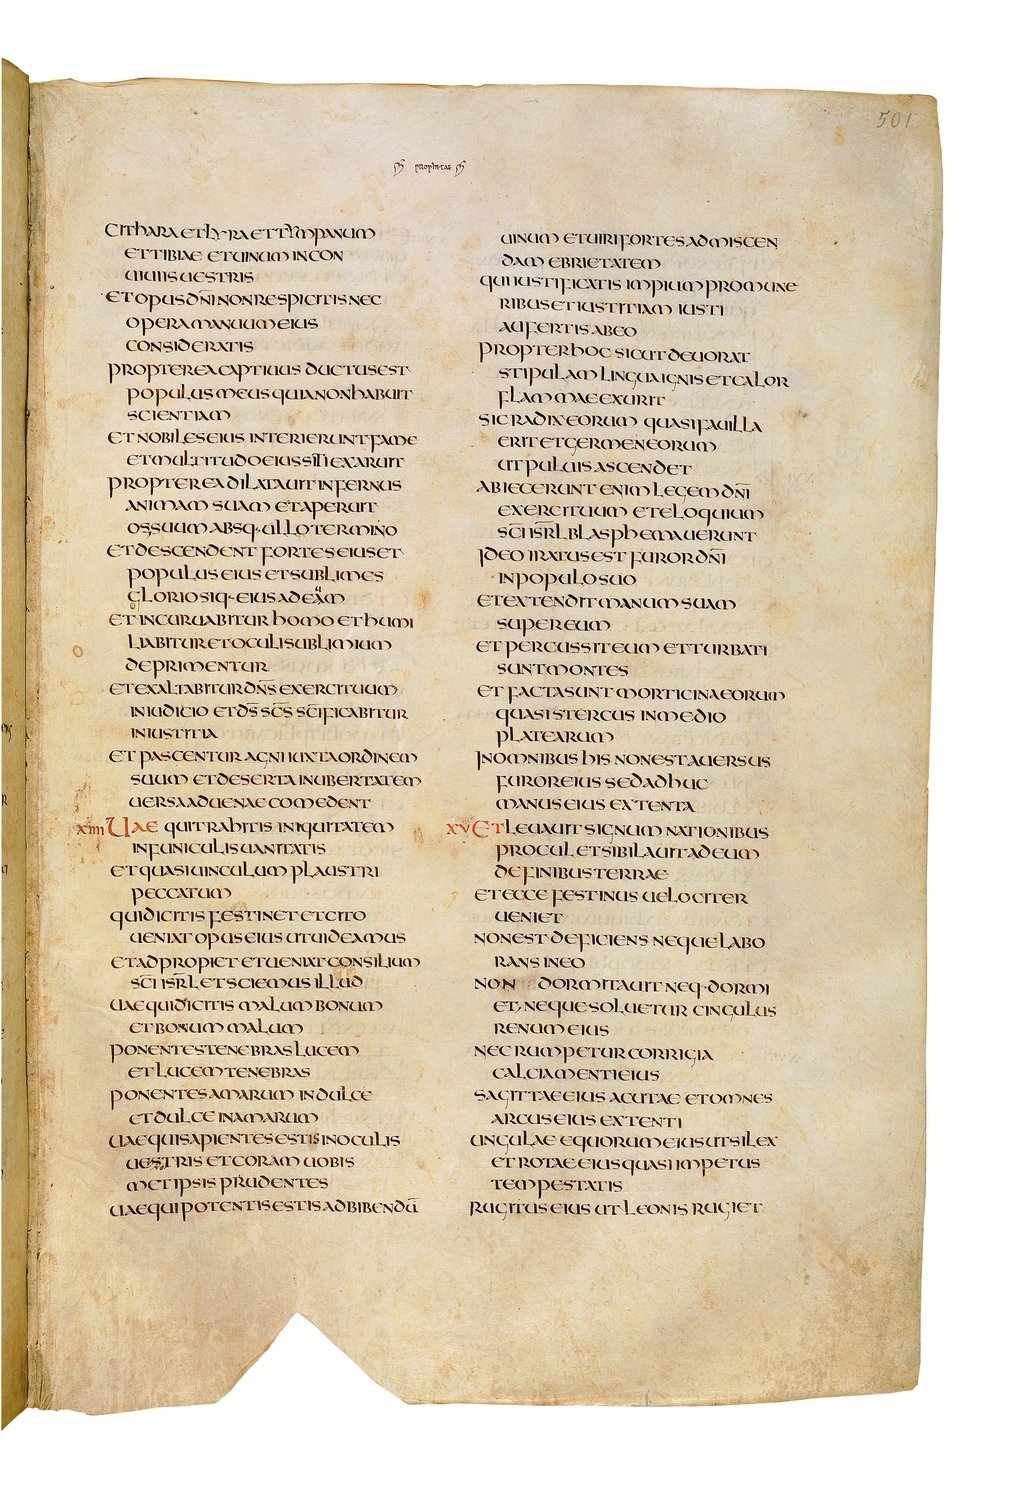 501
prophetae
CITHARA ET LYRA ET TYMPANUM
ET TIBIAE ET UINUM IN CON
UIUIIS UESTRIS
ET OPUS DN̄I NON RESPICITIS NEC
OPERA MANUUM EIUS
CONSIDERATIS
PROPTEREA CAPTIUUS DUCTUS EST
POPULUS MEUS QUIA NON HABUIT
SCIENTIAM
ET NOBILES EIUS INTERIERUNT FAME
ET MULTITUDO EIUS SITI EXARUIT
PROPTEREA DILATAUIT INFERNUS
ANIMAM SUAM ET APERUIT
OS SUUM ABSQ· ULLO TERMINO
ET DESCENDENT FORTES EIUS ET
POPULUS EIUS ET SUBLIMES
GLORIOSIQ· EIUS AD EUM
ET INCURUABITUR HOMO ET HUMI
LIABITUR ET OCULI SUBLIMIUM
DEPRIMENTUR
ET EXALTABITUR DN̄S EXERCITUUM
IN IUDICIO ET D̄S SC̄S SC̄IFICABITUR
IN IUSTITIA
ET PASCENTUR AGNI IUXTA ORDINEM
SUUM ET DESERTA IN UBERTATEM
UERSA ADUENAE COMEDENT
XIIII UAE QUI TRAHITIS INIQUITATEM
IN FUNICULIS UANITATIS
ET QUASI UINCULUM PLAUSTRI
PECCATUM
QUI DICITIS FESTINET ET CITO
UENIAT OPUS EIUS UT UIDEAMUS
ET ADPROPIET ET UENIAT CONSILIUM
SC̄I ISR̄L ET SCIEMUS ILLUD
UAE QUI DICITIS MALUM BONUM
ET BONUM MALUM
PONENTES TENEBRAS LUCEM
ET LUCEM TENEBRAS
PONENTES AMARUM IN DULCE
ET DULCE IN AMARUM
UAE QUI SAPIENTES ESTIS IN OCULIS
UESTRIS ET CORAM UOBIS
MET IPSIS PRUDENTES
UAE QUI POTENTIS ESTIS AD BIBENDŪ
UINUM ET UIRI FORTES AD MISCEN
DAM EBRIETATEM
QUI IUSTIFICATIS IMPIUM PRO MUNE
RIBUS ET IUSTITIAM IUSTI
AUFERTIS AB EO
PROPTER HOC SICUT DEUORAT
STIPULAM LINGUA IGNIS ET CALOR
FLAMMAE EXURIT
SIC RADIX EORUM QUASI FAUILLA
ERIT ET GERMEN EORUM
UT PULUIS ASCENDET
ABIECERUNT ENIM LEGEM DN̄I
EXERCITUUM ET ELOQUIUM
SC̄I ISR̄L BLASPHEMAUERUNT
IDEO IRATUS EST FUROR DN̄I
IN POPULO SUO
ET EXTENDIT MANUM SUAM
SUPER EUM
ET PERCUSSIT EUM ET TURBATI
SUNT MONTES
ET FACTA SUNT MORTICINA EORUM
QUASI STERCUS IN MEDIO
PLATEARUM
IN OMNIBUS HIS NON EST AUERSUS
FUROR EIUS SED ADHUC
MANUS EIUS EXTENTA
XV ET LEUAUIT SIGNUM NATIONIBUS
PROCUL ET SIBILAUIT AD EUM
DE FINIBUS TERRAE
ET ECCE FESTINUS UELOCITER
UENIET
NON EST DEFICIENS NEQUE LABO
RANS IN EO
NON DORMITAUIT NEQ· DORMI
ET, NEQUE SOLUETUR CINGULUS
RENUM EIUS
NEC RUMPETUR CORRIGIA
CALCIAMENTI EIUS
SAGITTAE EIUS ACUTAE ET OMNES
ARCUS EIUS EXTENTI
UNGULAE EQUORUM EIUS UT SILEX
ET ROTAE EIUS QUASI IMPETUS
TEMPESTATIS
RUGITUS EIUS UT LEONIS RUGIET